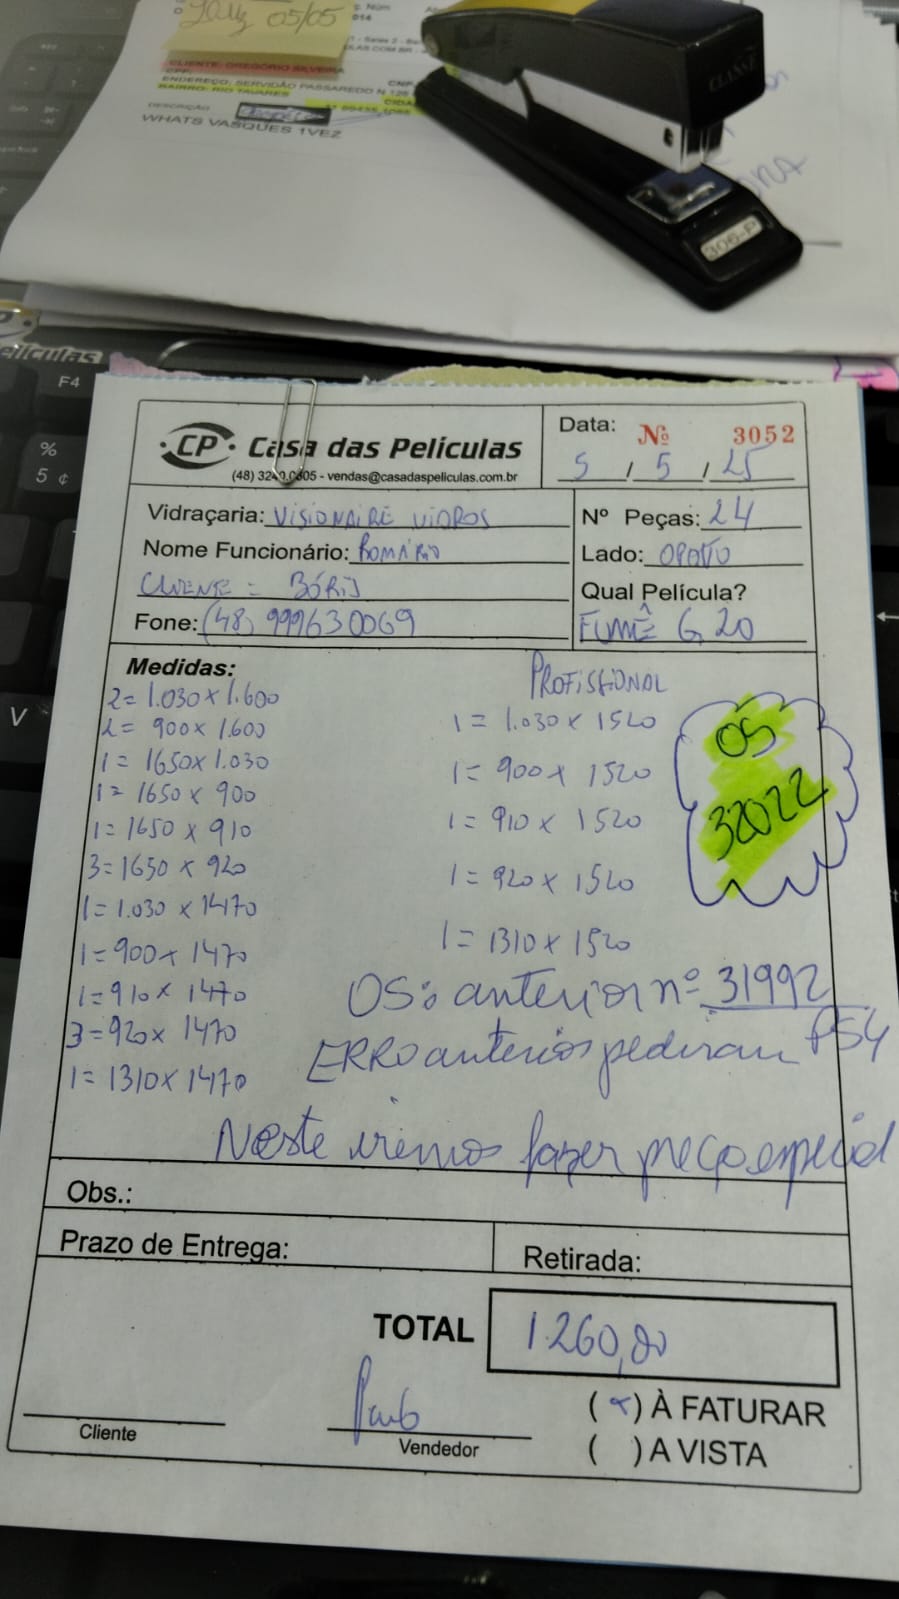 05/05
CLIENTE: GREGÓRIO SILVEIRA
CPF:
ENDEREÇO: SERVIDÃO PASSAREDO N 128
BAIRRO: RIO TAVARES
CIDA
DESCRIÇÃO
WHATS VASQUES 1VEZ
CLASSE
306-P
elículas
F4
%
5 ¢
V
CP Casa das Películas
(48) 3240.0605 - vendas@casadaspeliculas.com.br
Data: Nº 3052
5 / 5 / 25
Vidraçaria: VISIONAIRE VIDROS
Nome Funcionário: ROMÁRIO
CLIENTE = BÓRIS
Fone: (48) 999630069
Nº Peças: 24
Lado: OPOSTO
Qual Película?
FUMÊ G20
Medidas:
2 = 1.030 x 1.600
2 = 900 x 1.600
1 = 1650 x 1.030
1 = 1650 x 900
1 = 1650 x 910
3 = 1650 x 920
1 = 1.030 x 1470
1 = 900 x 1470
1 = 910 x 1470
3 = 920 x 1470
1 = 1310 x 1470
PROFISSIONAL
1 = 1.030 x 1520
1 = 900 x 1520
1 = 910 x 1520
1 = 920 x 1520
1 = 1310 x 1520
OS
32022
OS: anterior nº 31992
ERRO anterior pediram PS4
Neste iremos fazer preço especial
Obs.:
Prazo de Entrega:
Retirada:
TOTAL 1.260,00
Cliente
Vendedor
( x ) À FATURAR
( ) A VISTA